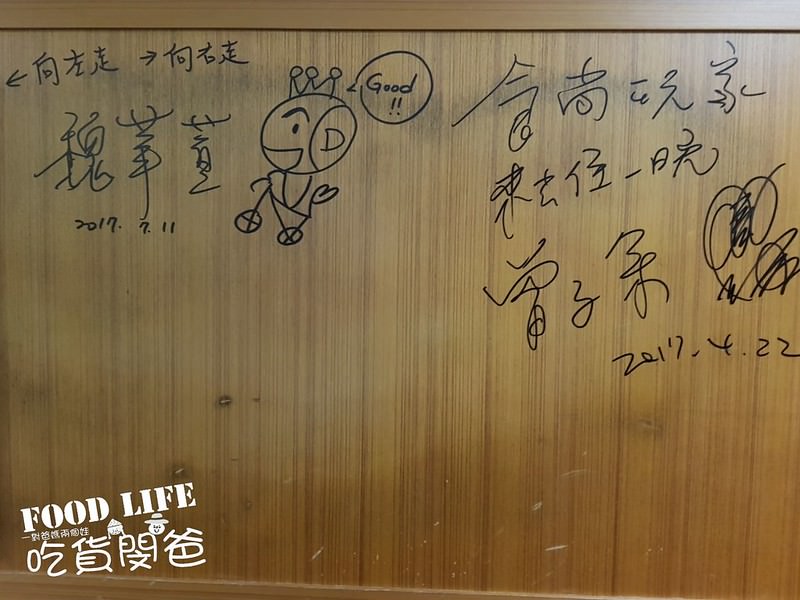 ←向左走 →向右走
魏華萱
2017. 7. 11
Good
!!
D
食尚玩家
來去住一晚
曾子余
2017. 4. 22
FOOD LIFE
一對爸媽兩個娃
吃貨閔爸